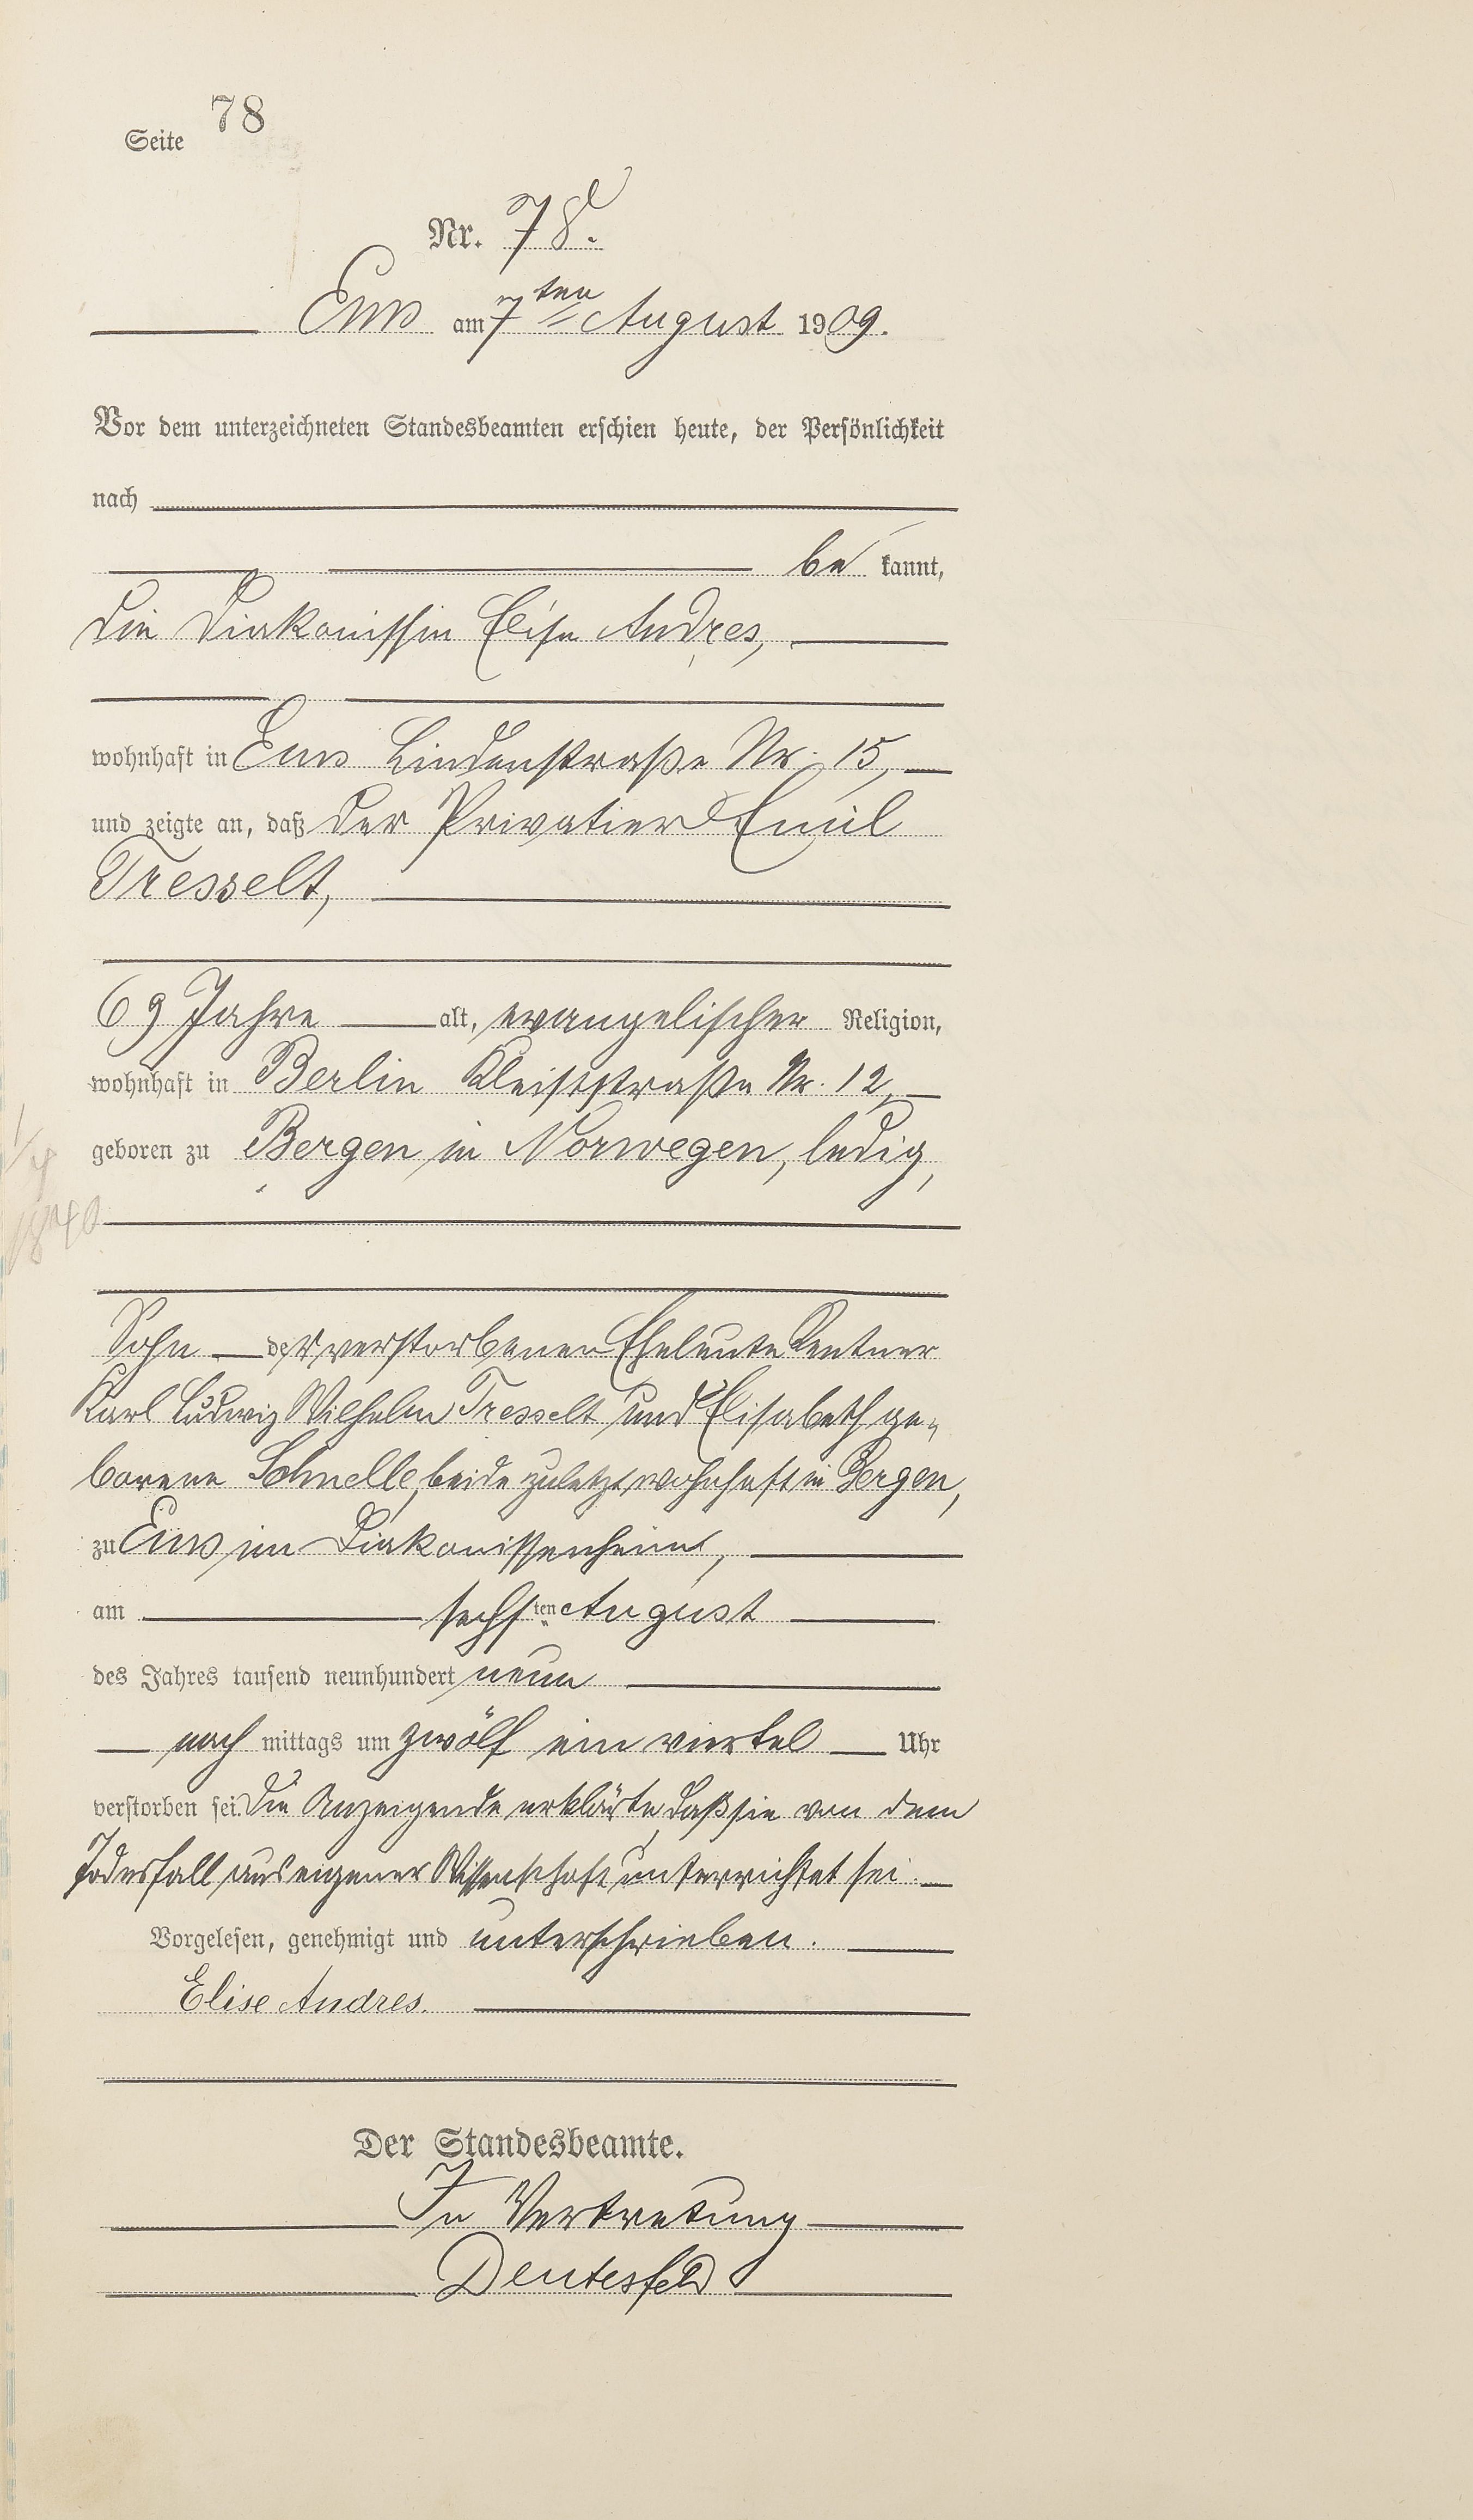 78
Seite
Nr. 78.
Ems am 7ten August 1909.
Vor dem unterzeichneten Standesbeamten erschien heute, der Persönlichkeit
nach
be kannt,
die Diakonissin Elise Andres,
wohnhaft in Ems Lindenstraße Nr. 15,
und zeigte an, daß der Privatier Emil
Tresselt,
69 Jahre alt, evangelischer Religion,
wohnhaft in Berlin Kleiststraße Nr. 12,
geboren zu Bergen in Norwegen, ledig,
1840
Sohn der verstorbenen Eheleute Rentner
Karl Ludwig Wilhelm Tresselt und Elisabeth ge„
borene Schnelle, beide zuletzt wohnhaft in Bergen,
zu Ems im Diakonissenheim,
am sechsten August
des Jahres tausend neunhundert neun
nach mittags um zwölf ein viertel Uhr
verstorben sei. Die Anzeigende erklärte, daß sie von dem
Todesfall aus eigener Wissenschaft unterrichtet sei.
Vorgelesen, genehmigt und unterschrieben.
Elise Andres.
Der Standesbeamte.
In Vertretung